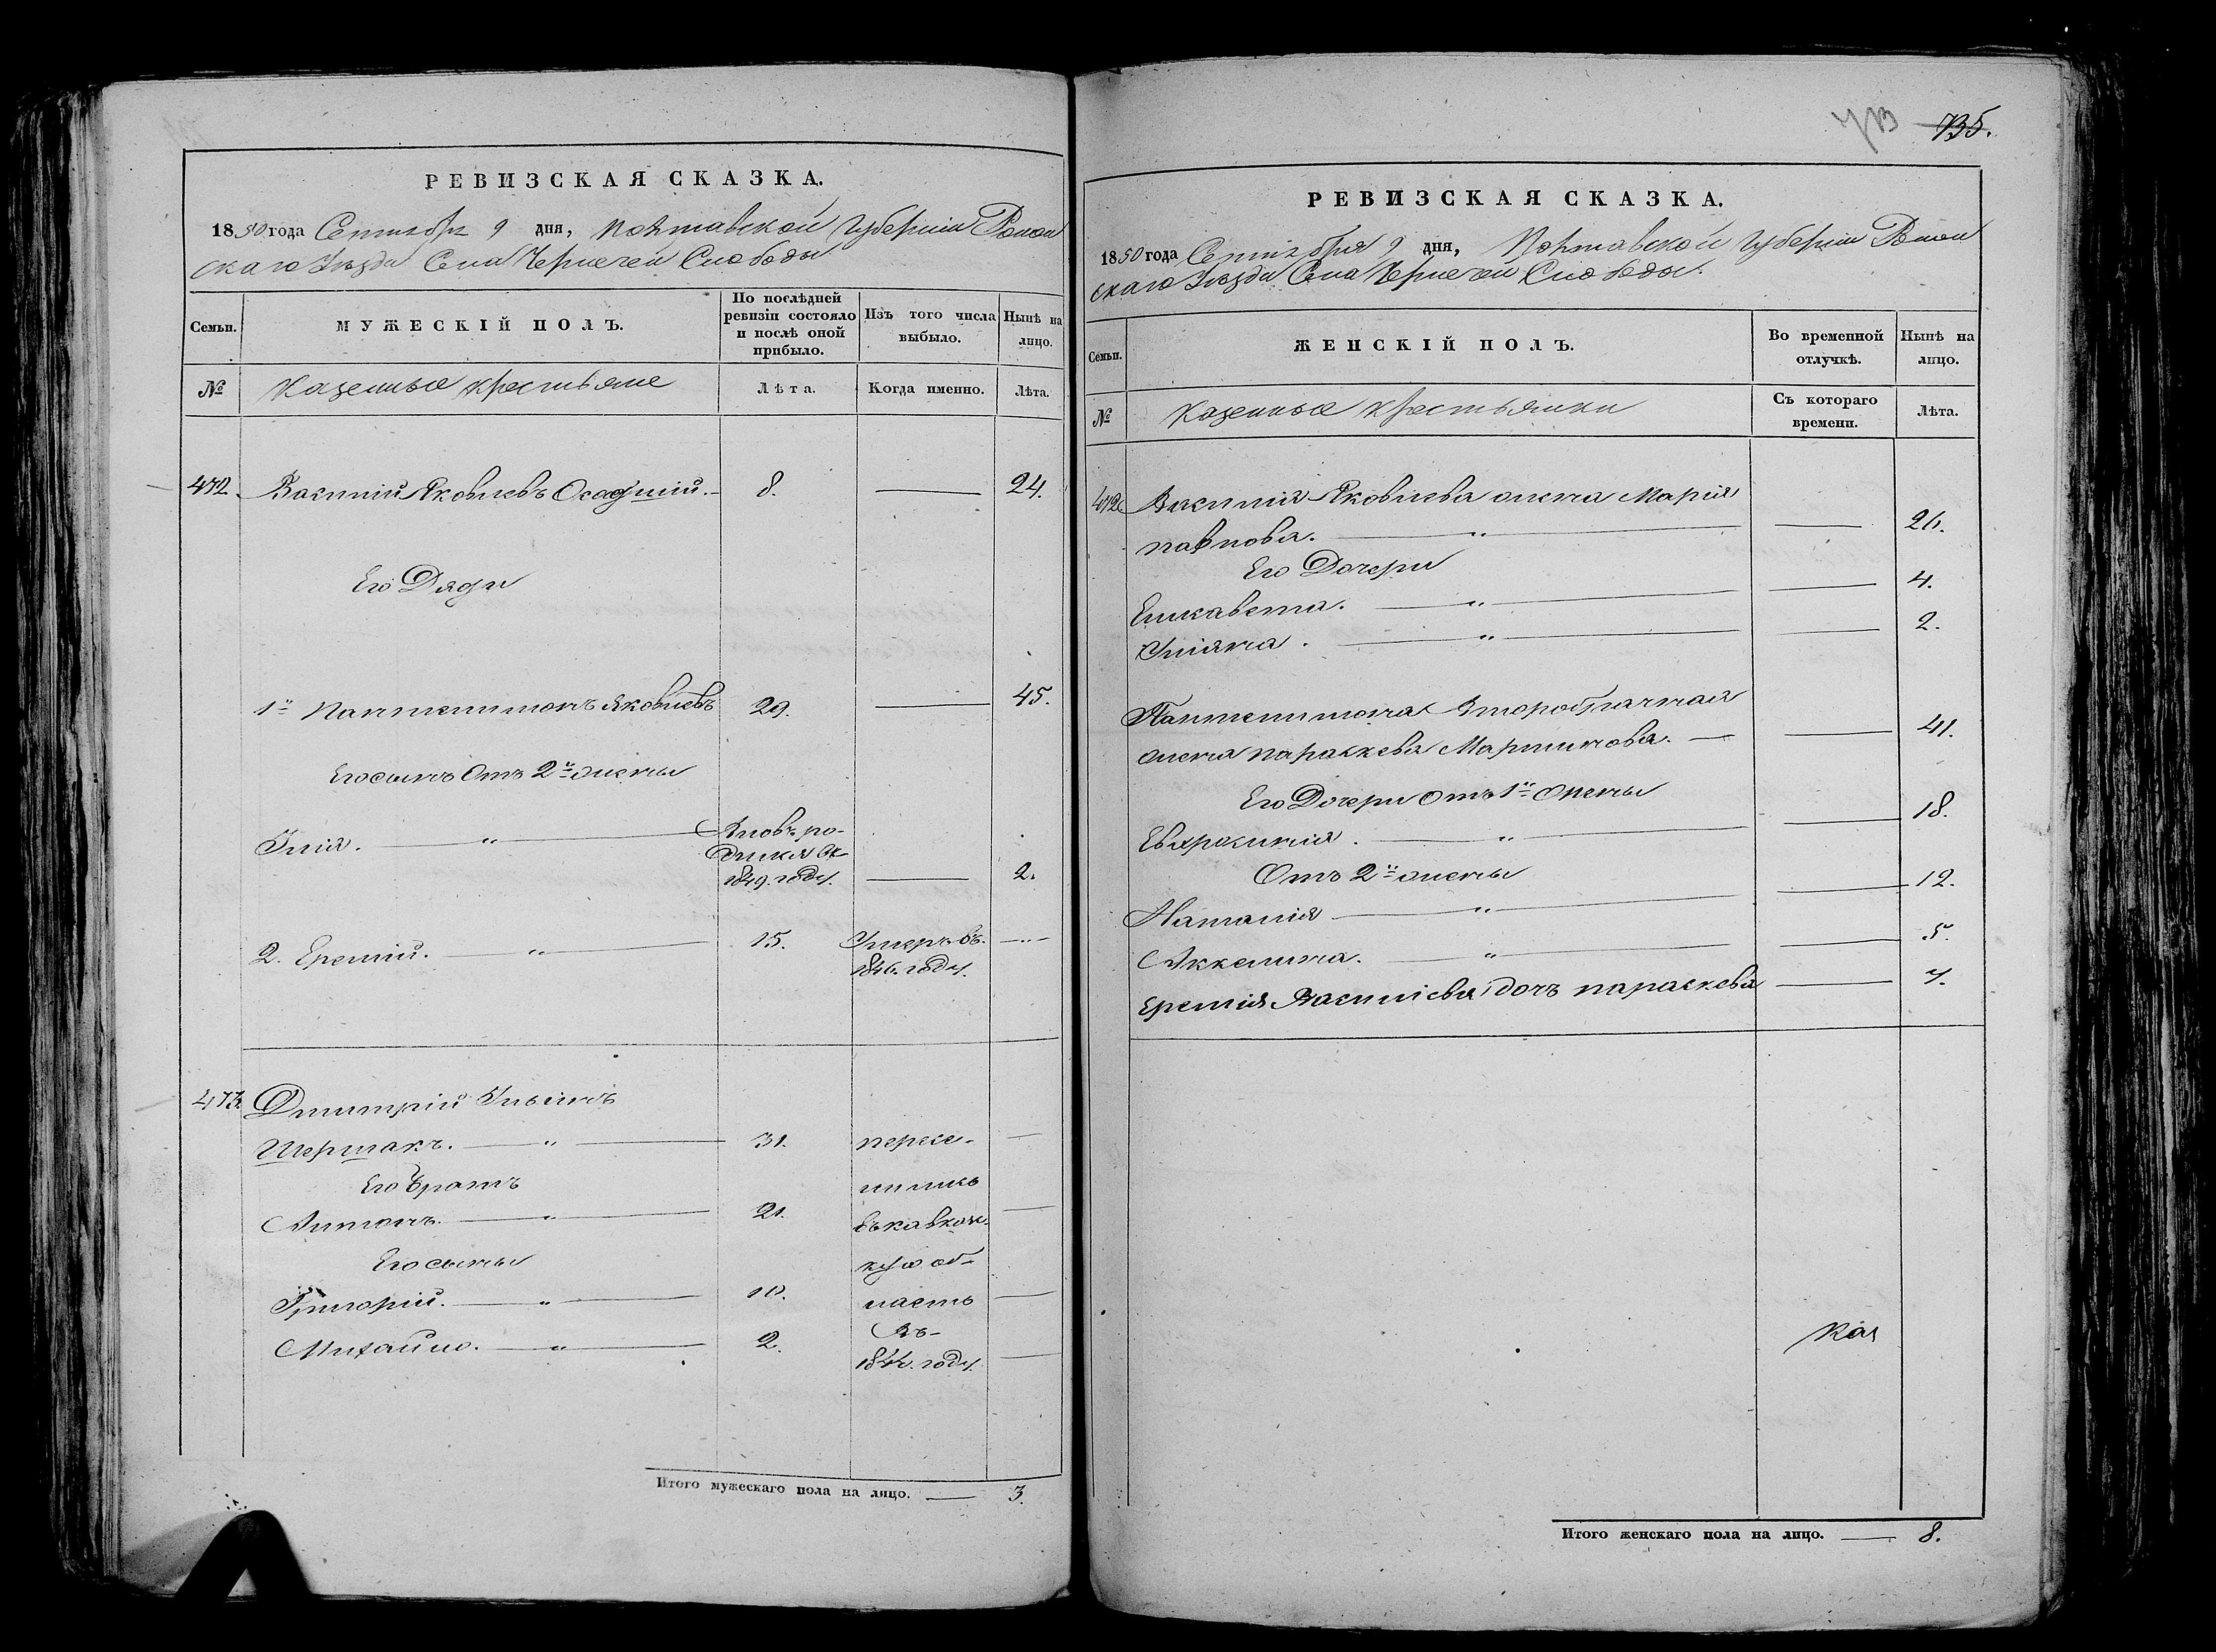 РЕВИЗСКАЯ СКАЗКА.
1850 года Сентября 9 дня, Полтавской Губерніи Ромен
скаго Уѣзда Села Чернечей Слободы
Семьи.
МУЖЕСКІЙ ПОЛЪ.
По послѣдней ревизіи состояло и послѣ оной прибыло.
Изъ того числа выбыло.
Нынѣ на лицо.
№
Казенные крестьяне
Лѣта.
Когда именно.
Лѣта.
472. Василій Яковлевъ Осадчій. 8. 24.
Его Дяди
1й Пантелимонъ Яковлевъ 29. 45.
Его сынъ Отъ 2й жены
Илія. " Вновь ро-
дился въ
1849. году. 2.
2. Еремій. " 15. Умеръ въ.
1846. году.
473. Дмитрій Ильинъ
Шершакъ. " 31. пересе-
Его братъ лились
Антонъ. " 21. въ кавказ-
Его сыны кую об-
Григорій. " 10. ласть
Михайло. " 2. Въ-
1844. году.
Итого мужескаго пола на лицо. 3.
735.
РЕВИЗСКАЯ СКАЗКА.
1850 года Сентября 9 дня, Полтавской Губерніи Ромен
скаго Уѣзда Села Чернечей Слободы.
Семьи.
ЖЕНСКІЙ ПОЛЪ.
Во временной отлучкѣ.
Нынѣ на лицо.
№
Казенные крестьянки
Съ котораго времени.
Лѣта.
472. Василія Яковлева жена Марія
павлова. " 26.
Его Дочери
Елисавета. " 4.
Уліяна. " 2.
Пантелимона Второбрачная
жена параскева Мартинова. 41.
Его Дочери Отъ 1й жены
Евфросинія. " 18.
Отъ 2й жены
Наталія " 12.
Аккелина. " 5.
Еремія Василіева дочь параскева 7.
Итого женскаго пола на лицо. 8.